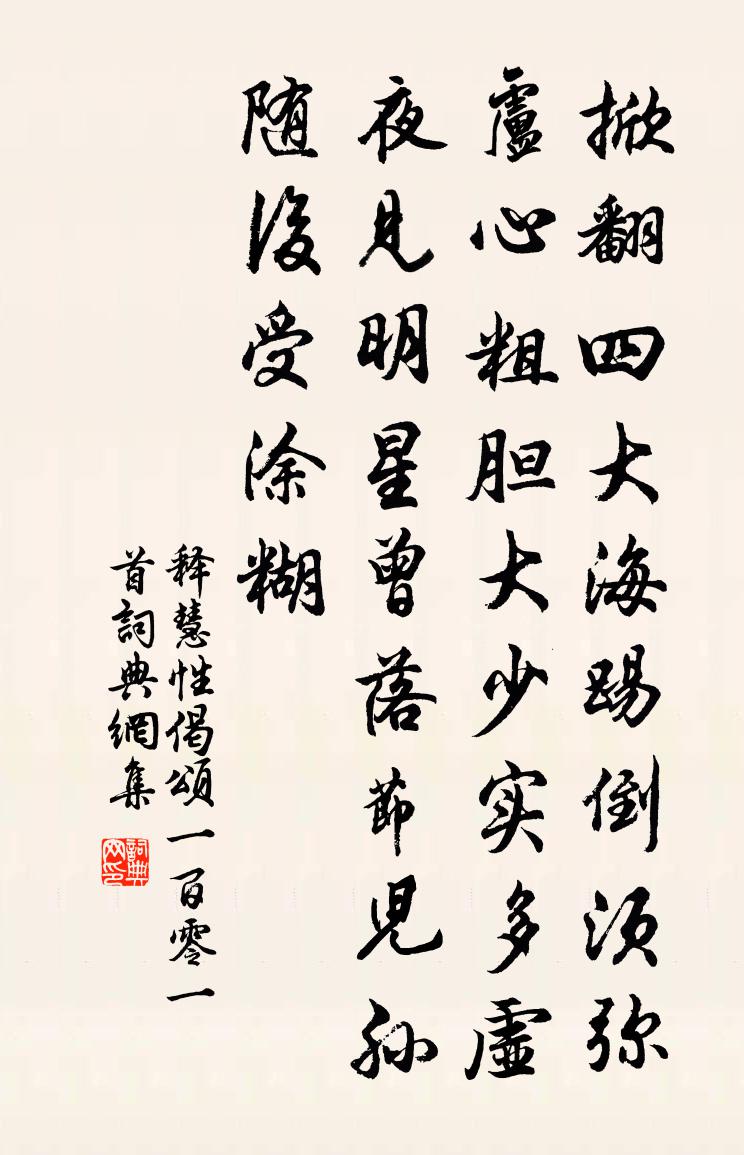 掀翻四大海踢倒须弥
盧心粗胆大少实多虚
夜見明星曾落節児孙
随後受涂糊
释慧性偈頌一百零一
首詞典網集
詞典网印